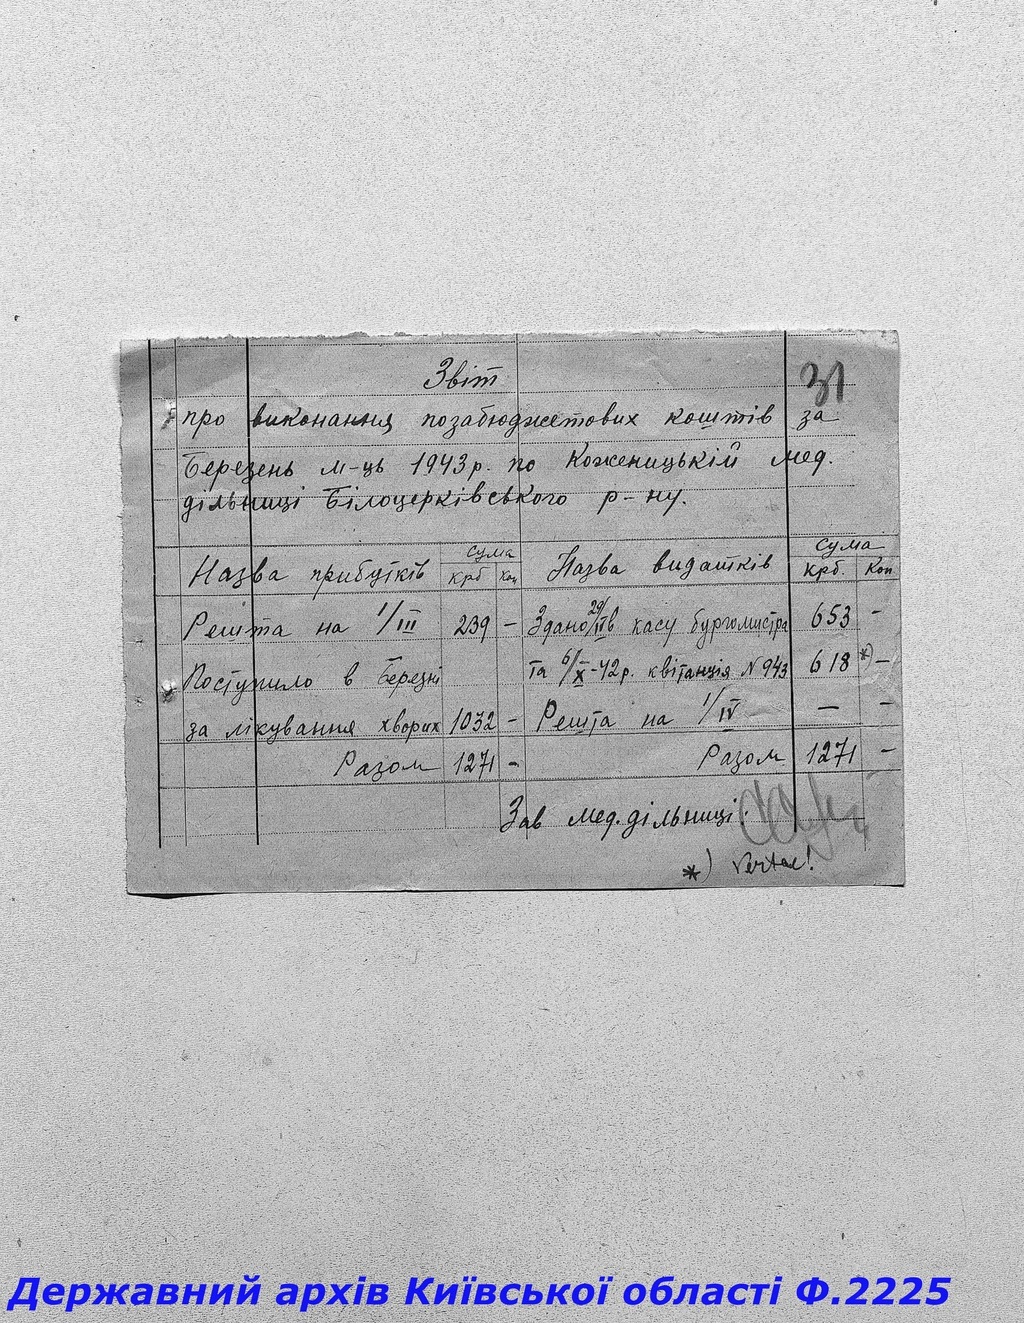 31
Звіт
про виконання позабюджетових коштів за
Березень м-ць 1943р. по Коженицькій мед.
дільниці Білоцерківського р-ну.
Назва прибутків | сума крб коп | Назва видатків | сума крб. коп
Решта на 1/III | 239 | - | Здано 29/III в касу бургомистра | 653 | -
Поступило в Березні | та 6/X-42р. квітанція N 943 | 618 *) | -
за лікування хворих | 1032 | - | Решта на 1/IV | — | -
Разом | 1271 | - | Разом | 1271 | -
Зав мед. дільниці:
*) Vertae!
Державний архів Київської області Ф.2225